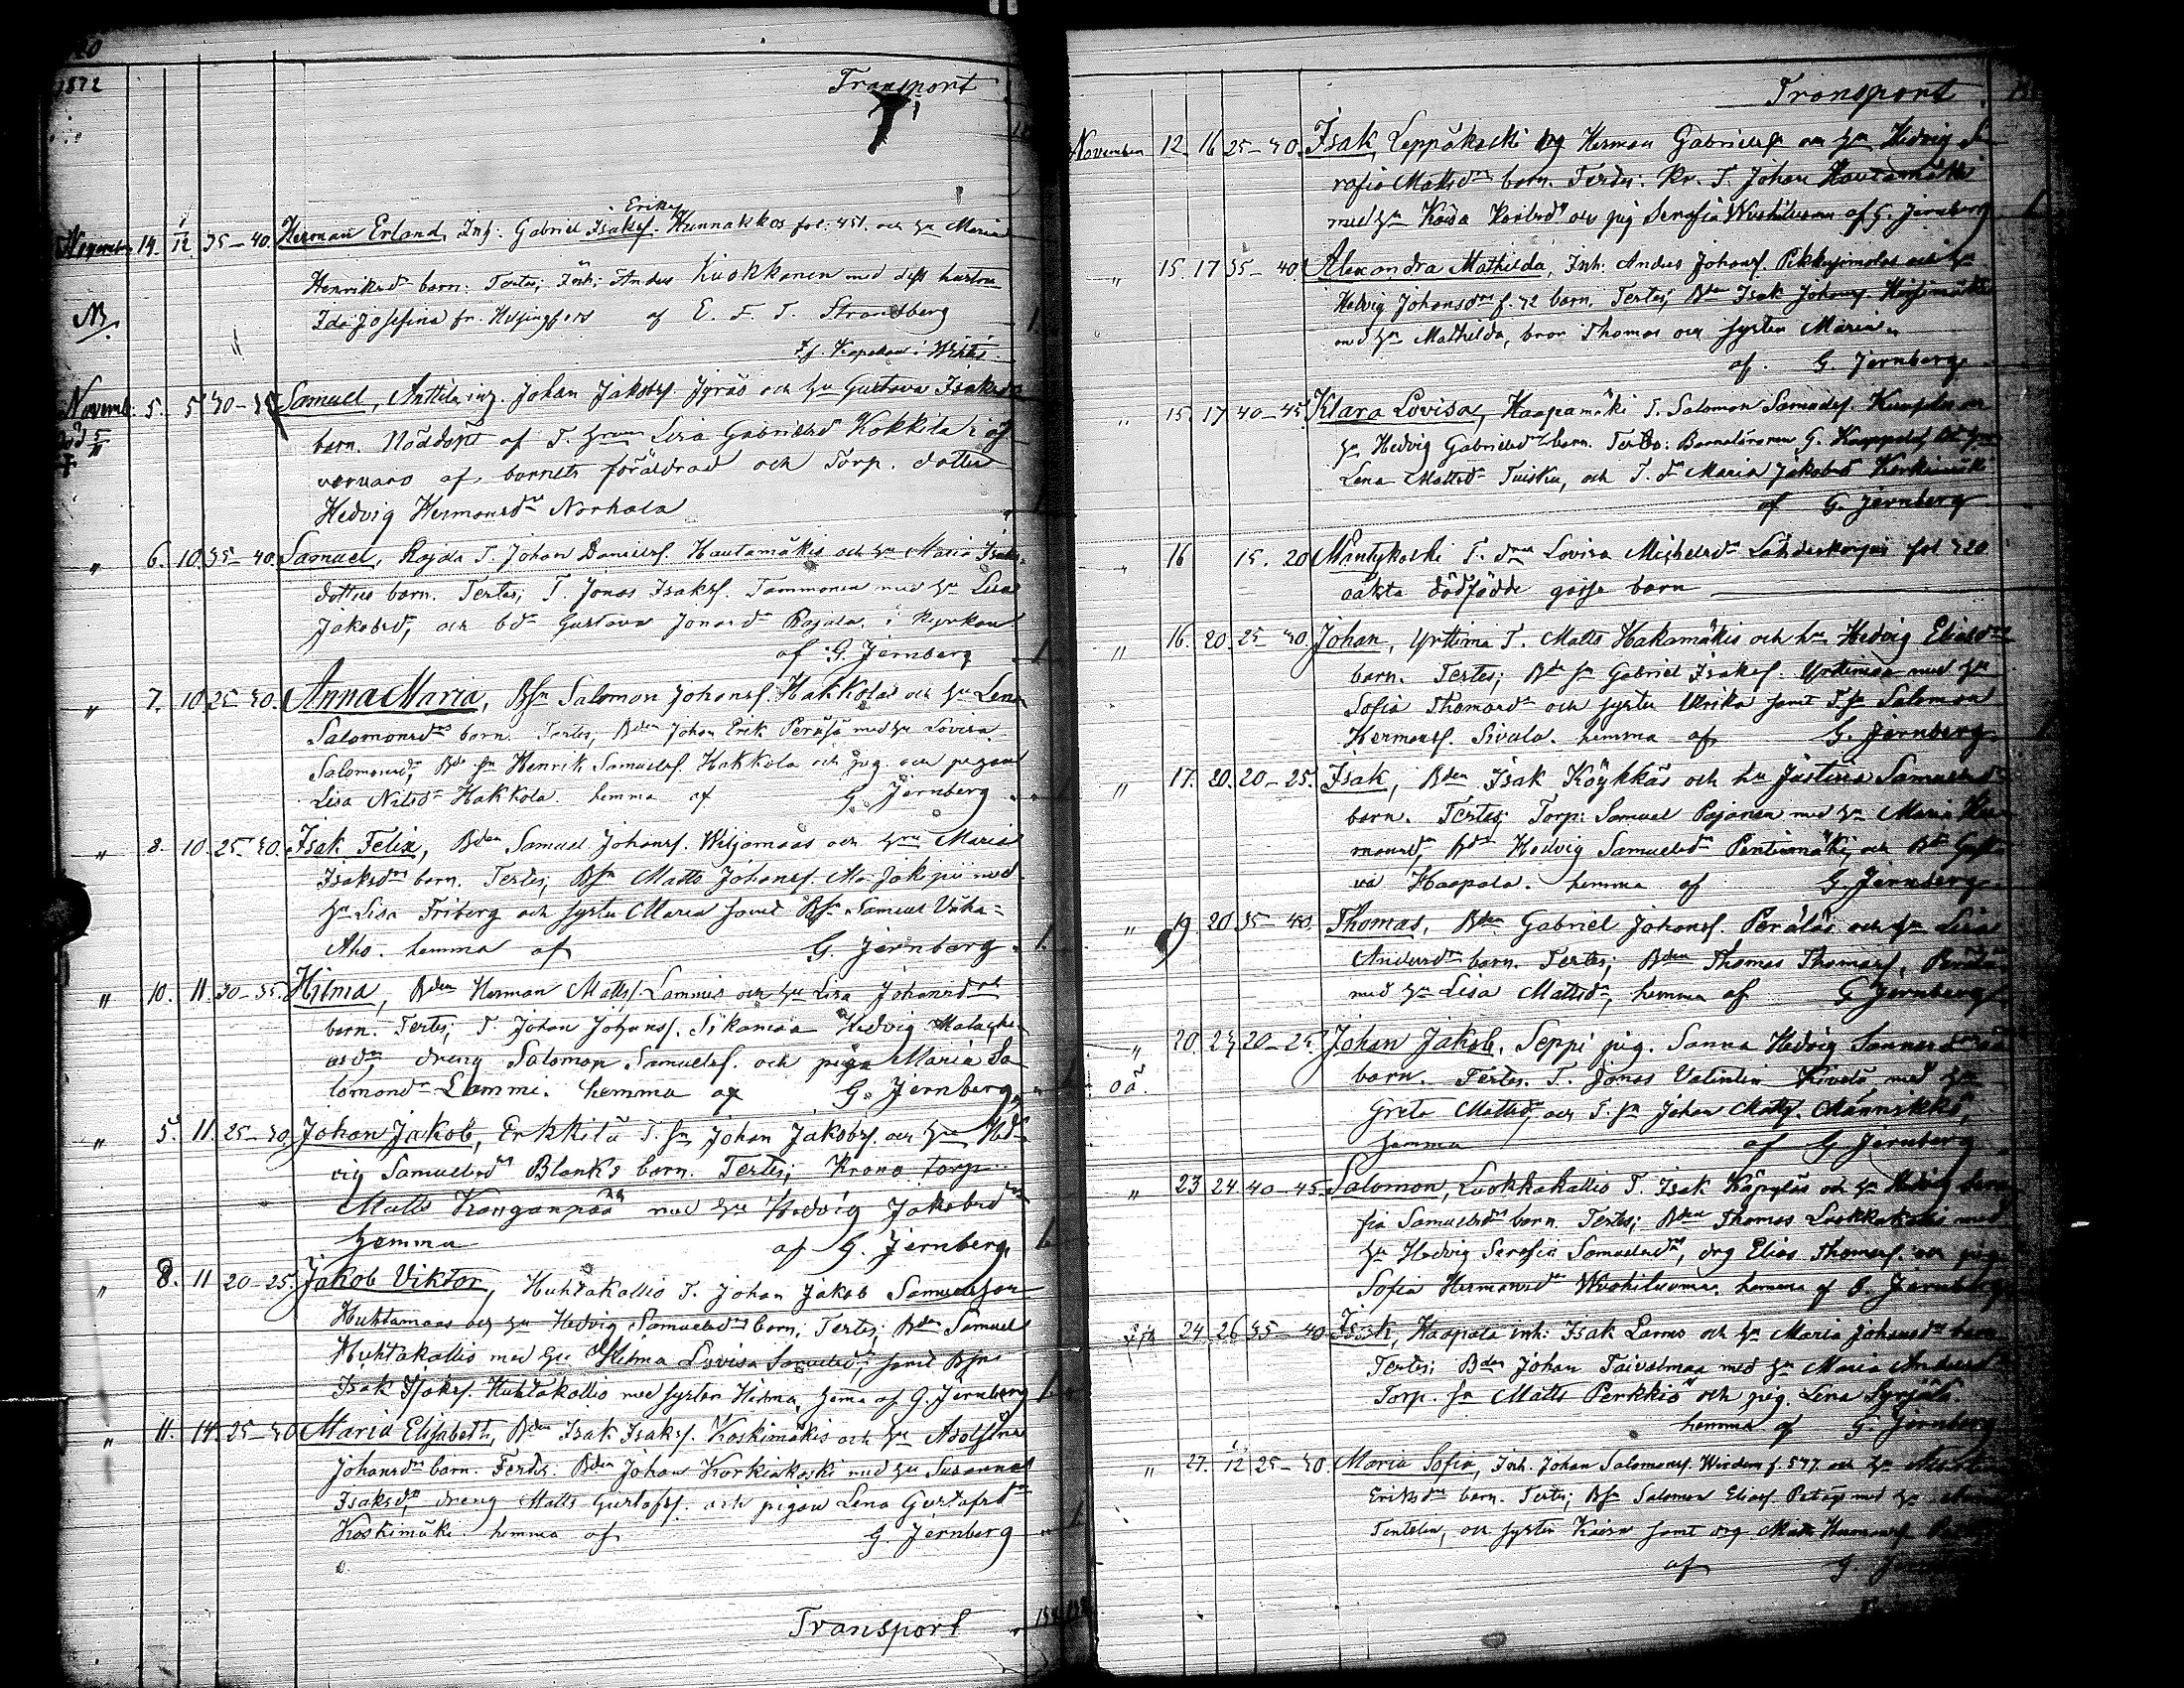 1872
Transport
November 14. 1/12. 35-40. Herman Erland, Inh: Gabriel Isaksf. Eriksf Hunnakkos fol: 451. och hu Maria
Henriksdrs barn: Testes; Inh: Anders Kuokkanen med dess hustru
Ida Josefina fr. Helsingfors af E. F. T. Strandberg
Kapellan i
Novemb. 5. 5 30- Samuel, Anttila ing. Johan Jakobsf. Jyräs och hu Gustava Isaksdrs
barn. Nöddöpt af T. hrun Lisa Gabrielsd Kokkila i öf
vervaro af barnets föräldrar och Torp. dotter
Hedvig Hermansdr Norkola
" 6. 10. 35-40. Samuel, Rajala T. Johan Danielsf. Hautamäkis och hu Maria Isaks
dotters barn. Testes; T. Jonas Isaksf. Tammonen med hu Lisa
Jakobsdr, och bdr Gustava Jonasdr Rajala, i Kyrkan
af G. Jernberg 1.
" 7. 10. 25-30. Anna Maria, Bsn Salomon Johansf. Hakkolas och hu Lena
Salomonsdrs barn. Testes; Bden Johan Erik Peräsä med hu Lovisa
Salomonsdr, Bde sn Henrik Samuelsf. Hakkola och pigan
Lisa Nilsdr Hakkola. hemma af G. Jernberg
" 8. 10. 25-30. Isak Felix, Bden Samuel Johansf. Wiljamaas och hru Maria
Isaksdrs barn. Testes; Bsn Matts Johansf. Ala Jokipii med
hu Lisa Friberg och syster Maria samt Bsn Samuel Vähä-
Aho. hemma af G. Jernberg. 1.
" 10. 11. 30-35. Hilma, Bden Herman Mattsf. Lammis och hu Lisa Johansdrs
barn. Testes; T. Johan Johansf. Sikamaa Hedvig Malachi
asdr, dreng Salomon Samuelsf. och piga Maria Sa
lomonsdr Lammi. hemma af G. Jernberg
" 5. 11. 25-30. Johan Jakob, Erkkilä T. sn Johan Jakobsf. och hu Hed
vig Samuelsdrs Blanks barn. Testes; Krono torp
Matts Kanganpää med hu Hedvig Jakobsdr
hemma af G. Jernberg 1.
" 8. 11 20-25. Jakob Viktor, Huhtakallio T. Johan Jakob Samuelsson
Huhtamaas och hu Hedvig Samuelsdrs barn; Testes; Bden Samuel
Huhtakallio med hu Hilma Lovisa Samuelsdr, samt Bsn
Isak Isaksf. Huhtakallio med syster Hilma, hema af G. Jernberg 1.
" 11. 14. 25-30 Maria Elisabeth, Bden Isak Isaksf. Koskimäkis och hu Adolfina
Johansdrs barn. Testes. Bden Johan Korkiakoski med hu Susanna
Isaksdr, dreng Matts Gustafsf. och pigan Lena Gustafsdr
Koskimäki hemma af G. Jernberg
Transport
Transport
November 12. 16 25-30. Isak, Leppäkoski drg Herman Gabrielsf och hu Hedvig Se
rafia Mattsdrs barn. Testes: Kr. T. Johan Hautamäki
med hu Kaisa och pig Serafia Wuohiluoma af G. Jernberg 1.
" 15. 17 35-40. Alexandra Mathilda, Inh: Anders Johansf. och hu
Hedvig Johansdrs f. 72 barn. Testes; Bden Isak Johansf.
med hu Mathilda, bror Thomas och syster Maria.
af. G. Jernberg.
" 15. 17 40-45. Klara Lovisa, Haapamäki T. Salomon Samuelsf. och
hu Hedvig Gabrielsdrs barn. Testes: Barnaläraren G.
Lena Mattsdr Tuisku, och T. dr Maria Jakobsd Korkiamäki
af G. Jernberg
" 16 15. 20 Mäntykoski T. drs Lovisa Michelsdrs fol 720
oäkta dödfödde gosse barn
" 16. 20. 25-30. Johan, Yrttimä T. Matts Hakamäkis och hu Hedvig Eliasdrs
barn. Testes; Bde sn Gabriel Isaksf. Yrttimaa med hu
Sofia Thomasdr och syster Ulrika samt T. sn Salomon
Hermansf. Sivula. hemma af G. Jernberg.
" 17. 20. 20-25. Isak, Bden Isak Köykkäs och hu Justina Samuelsdrs
barn. Testes; Torp: Samuel Pajanen med hu Maria Her
mansdr, Bdr Hedvig Samuelsdr Penttinmäki, och Bdr Gusta
va Haapala. hemma af G. Jernberg.
" 19 20 35-40. Thomas, Bden Gabriel Johansf. Peräläs och hu Lisa
Andersdrs barn. Testes; Bden Thomas Thomasf. Perälä
med hu Lisa Mattsdr, hemma af G Jernberg
" 20. 24 20-25. Johan Jakob. Seppi pig. Sanna Hedvig
oä. barn. Testes. T. Jonas Valentin Kivelä med hu
Greta Mattsdr, och T. sn Johan Mattsf. Männikkö,
hemma af G Jernberg
" 23. 24. 40-45. Salomon, Luokkakallio T. Isak Käpyläs och hu Hedvig Sera
fia Samuelsdrs barn. Testes; Bden Thomas Luokkakallio med
hu Hedvig Serafia Samuelsdr, drg Elias Thomasf. och pig
Sofia Hermansdr Wuohiluoma. hemma af G. Jernberg
24. 26 35-40 Isak, Haapala inh: Isak Lams och hu Maria Johansdrs barn
Testes; Bden Johan Taivalmaa med hu Maria Andersdr
Torp. sn Matts Perkkiö och pig. Lena Syrjälä.
hemma af G. Jernberg
" 27. 1/12 25-30. Maria Sofia, Inh. Johan Salomonsf. f. 577 och hu
Eriksdrs barn. Testes; Bsn Salomon Eliasf. med hu
och syster Kaisa samt drg Matts Hermansf
af G.